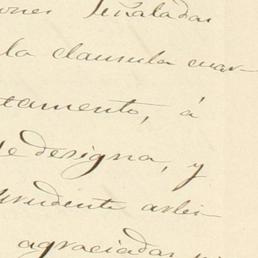 señaladas
la clausula cuar-
tamento, á
se designa, y
prudente arbi-
agraciadas